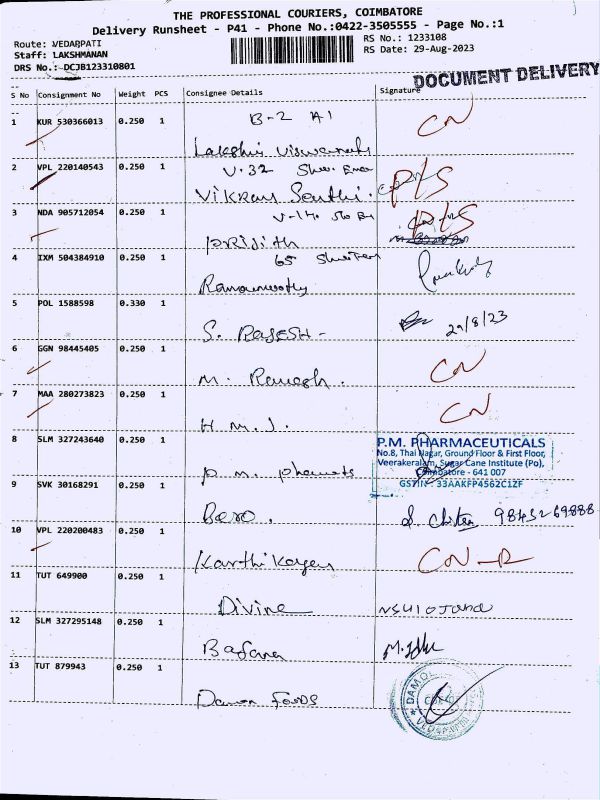 THE PROFESSIONAL COURIERS, COIMBATORE
Delivery Runsheet - P41 - Phone No.:0422-3505555 - Page No.:1
Route: VEDARPATI
Staff: LAKSHMANAN
DRS No.: DCJB123310801
RS No.: 1233108
RS Date: 29-Aug-2023
DOCUMENT DELIVERY
S No Consignment No Weight PCS Consignee Details Signature
1 KUR 530366013 0.250 1 B-2 A1 CN
Lakshmi Viswanath
2 VPL 220140543 0.250 1 V.32
Vikram P/S
3 NDA 905712054 0.250 1 V-14. P/S
Prijith
4 IXM 504384910 0.250 1 65
Ramamoorthy
5 POL 1588598 0.330 1
S. RAJESH - 29/8/23
6 GGN 98445405 0.250 1 CN
M. Ramesh.
7 MAA 280273823 0.250 1 CN
H.M.J.
8 SLM 327243640 0.250 1
P.M. PHARMACEUTICALS
No.8, Thai Nagar, Ground Floor & First Floor,
Veerakeralam, Sugar Cane Institute (Po),
Coimbatore - 641 007
GSTIN - 33AAKFP4562C1ZF
P.M.
9 SVK 30168291 0.250 1
10 VPL 220200483 0.250 1 CN-R
Karthikeyen
11 TUT 649900 0.250 1
Divine
12 SLM 327295148 0.250 1
Bafana
13 TUT 879943 0.250 1
Damon Foods